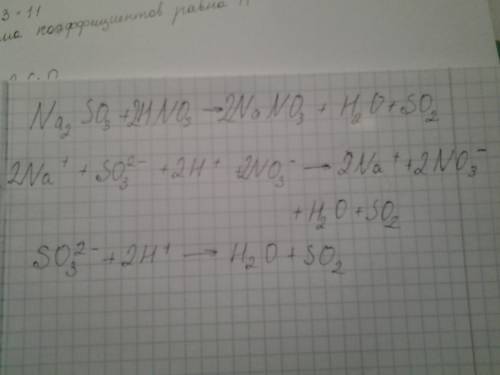 3 = 11
ма коэффициентов равна
Na₂SO₃ + 2HNO₃ → 2NaNO₃ + H₂O + SO₂
2Na⁺ + SO₃²⁻ + 2H⁺ 2NO₃⁻ → 2Na⁺ + 2NO₃⁻
+ H₂O + SO₂
SO₃²⁻ + 2H⁺ → H₂O + SO₂